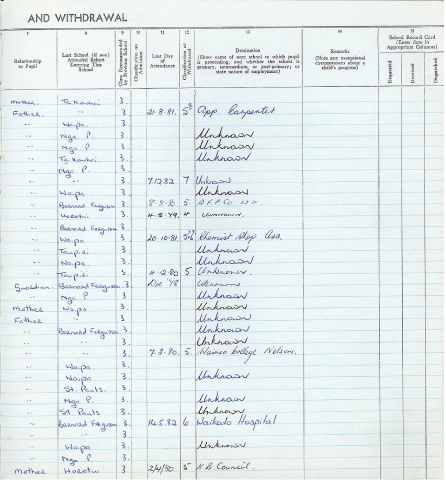 AND WITHDRAWAL
7 8 9 10 11 12 13 14 15
Relationship to Pupil
Last School (if any) Attended Before Entering This School
Last Day of Attendance
Destination
(Show name of next school to which pupil is proceeding, and whether the school is primary, intermediate, or post-primary; or state nature of employment)
Remarks
(Note any exceptional circumstances about a child's progress)
School Record Card
(Enter date in Appropriate Columns)
Requested
Received
Dispatched
Mother Te Kauhai 3.
Father " 3. 21.8.81. App. Carpenter
" Waipa 3.
" Nga P. 3. Unknown
" Nga P. 3. Unknown
" Te Kauhai 3. Unknown
" Nga P. 3.
" " 3. 7.12.82 7 Unknown
" Waipa 3. Unknown
" Bernard Ferguson 3. 5 A.F.F.Co
" Horotiu 3. 4.5.79. 4 Unknown.
" Bernard Ferguson 3.
" Waipa 3. 20.10.81. Chemist Shop Ass.
" Taupiri 3. Unknown
" Waipa 3. Unknown
" Taupiri 3. 11.12.80 5 Unknown.
Guardian Bernard Ferguson 3. Dec '78 Unknown
" Nga P. 3. Unknown
Mother Waipa 3. Unknown
Father " 3. Unknown
" Bernard Ferguson 3. Unknown
" " 3. Unknown
" " 3. 7.3.80. 5. Waimea College Nelson.
" Waipa. 3.
" Waipa 3. Unknown
" St. Pauls. 3.
" Nga P. 3. Unknown
" St. Pauls 3. Unknown
" Bernard Ferguson 3. 14.5.82 6 Waikato Hospital
" " 3.
" Waipa 3. Unknown
" Nga P 3.
Mother Horotiu 3. 2/4/80 5 N.B. Council.